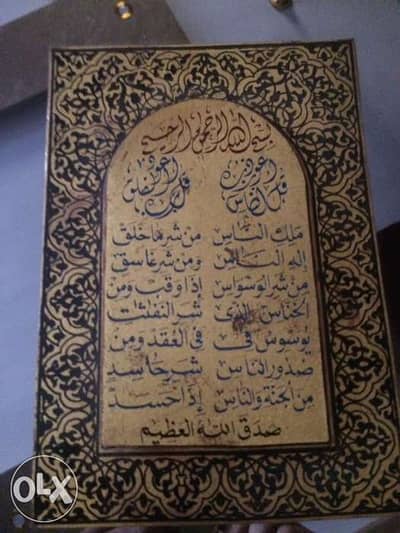 بسم الله الرحمن الرحيم
قل أعوذ برب الناس
ملك الناس
إله الناس
من شر الوسواس
الخناس الذي
يوسوس في
صدور الناس
من الجنة والناس
قل أعوذ برب الفلق
من شر ما خلق
ومن شر غاسق
إذا وقب ومن
شر النفثت
في العقد ومن
شر حاسد
إذا حسد
صدق الله العظيم
OLX